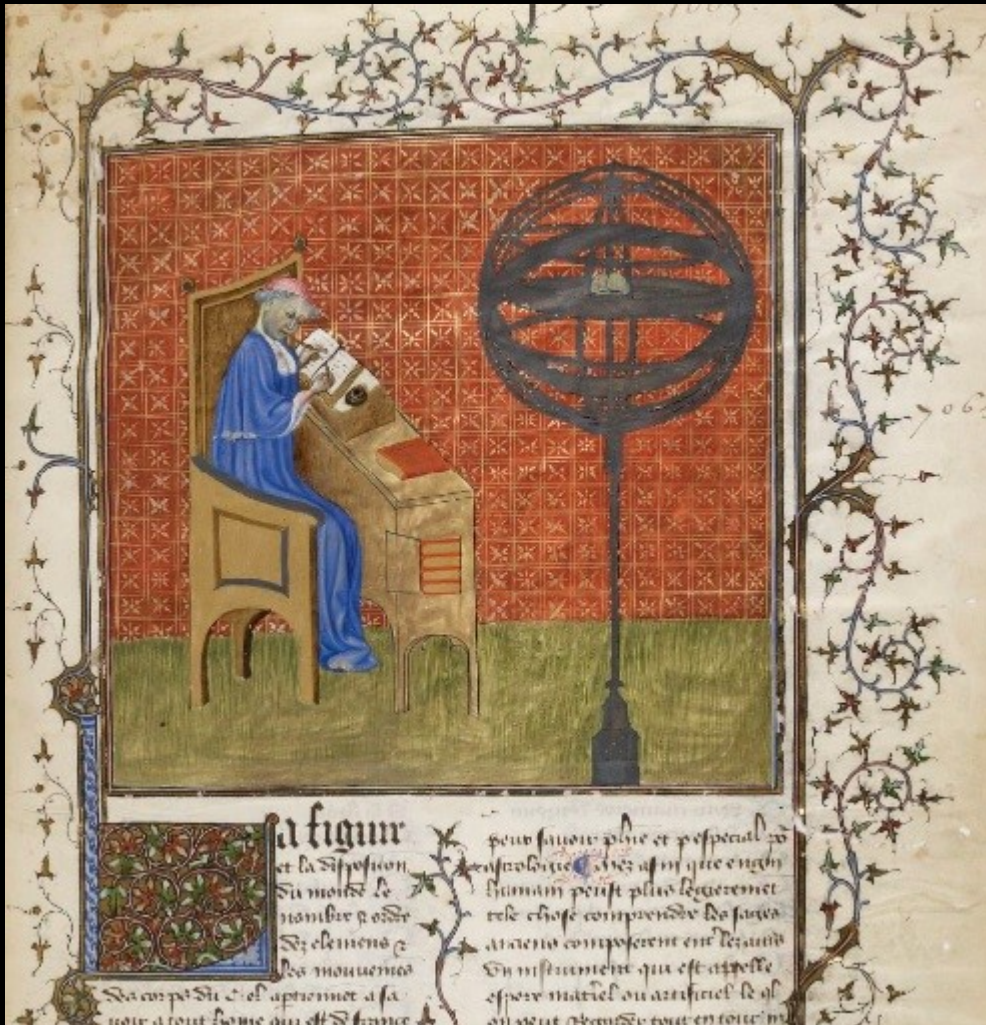 a figure
et la disposicion
du monde le
nombre & ordre
dez elemens &
les mouvemens
des corps du ciel aptiennet a sa
voir a tout home qui est de france
pour savoir plus et p especial
astrologie Mez afin que engin
humain peust plus legieremet
tele chose comprendre les sages
anciens composerent ent lez autres
un instrument qui est appelle
espere materiel ou artificiel le ql
on peut Regarder tout entour